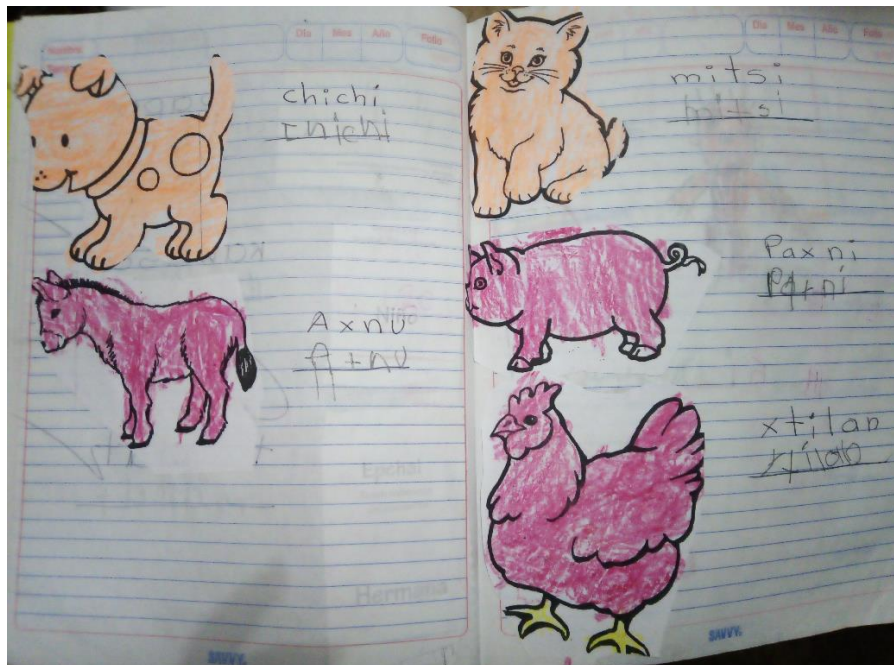 Nombre
Día Mes Año Folio
chichí
chichi
Axnu
A+nu
SAVVY.
Día Mes Año Folio
mitsi
mitsi
Paxni
Paxni
xtilan
xtilan
SAVVY.